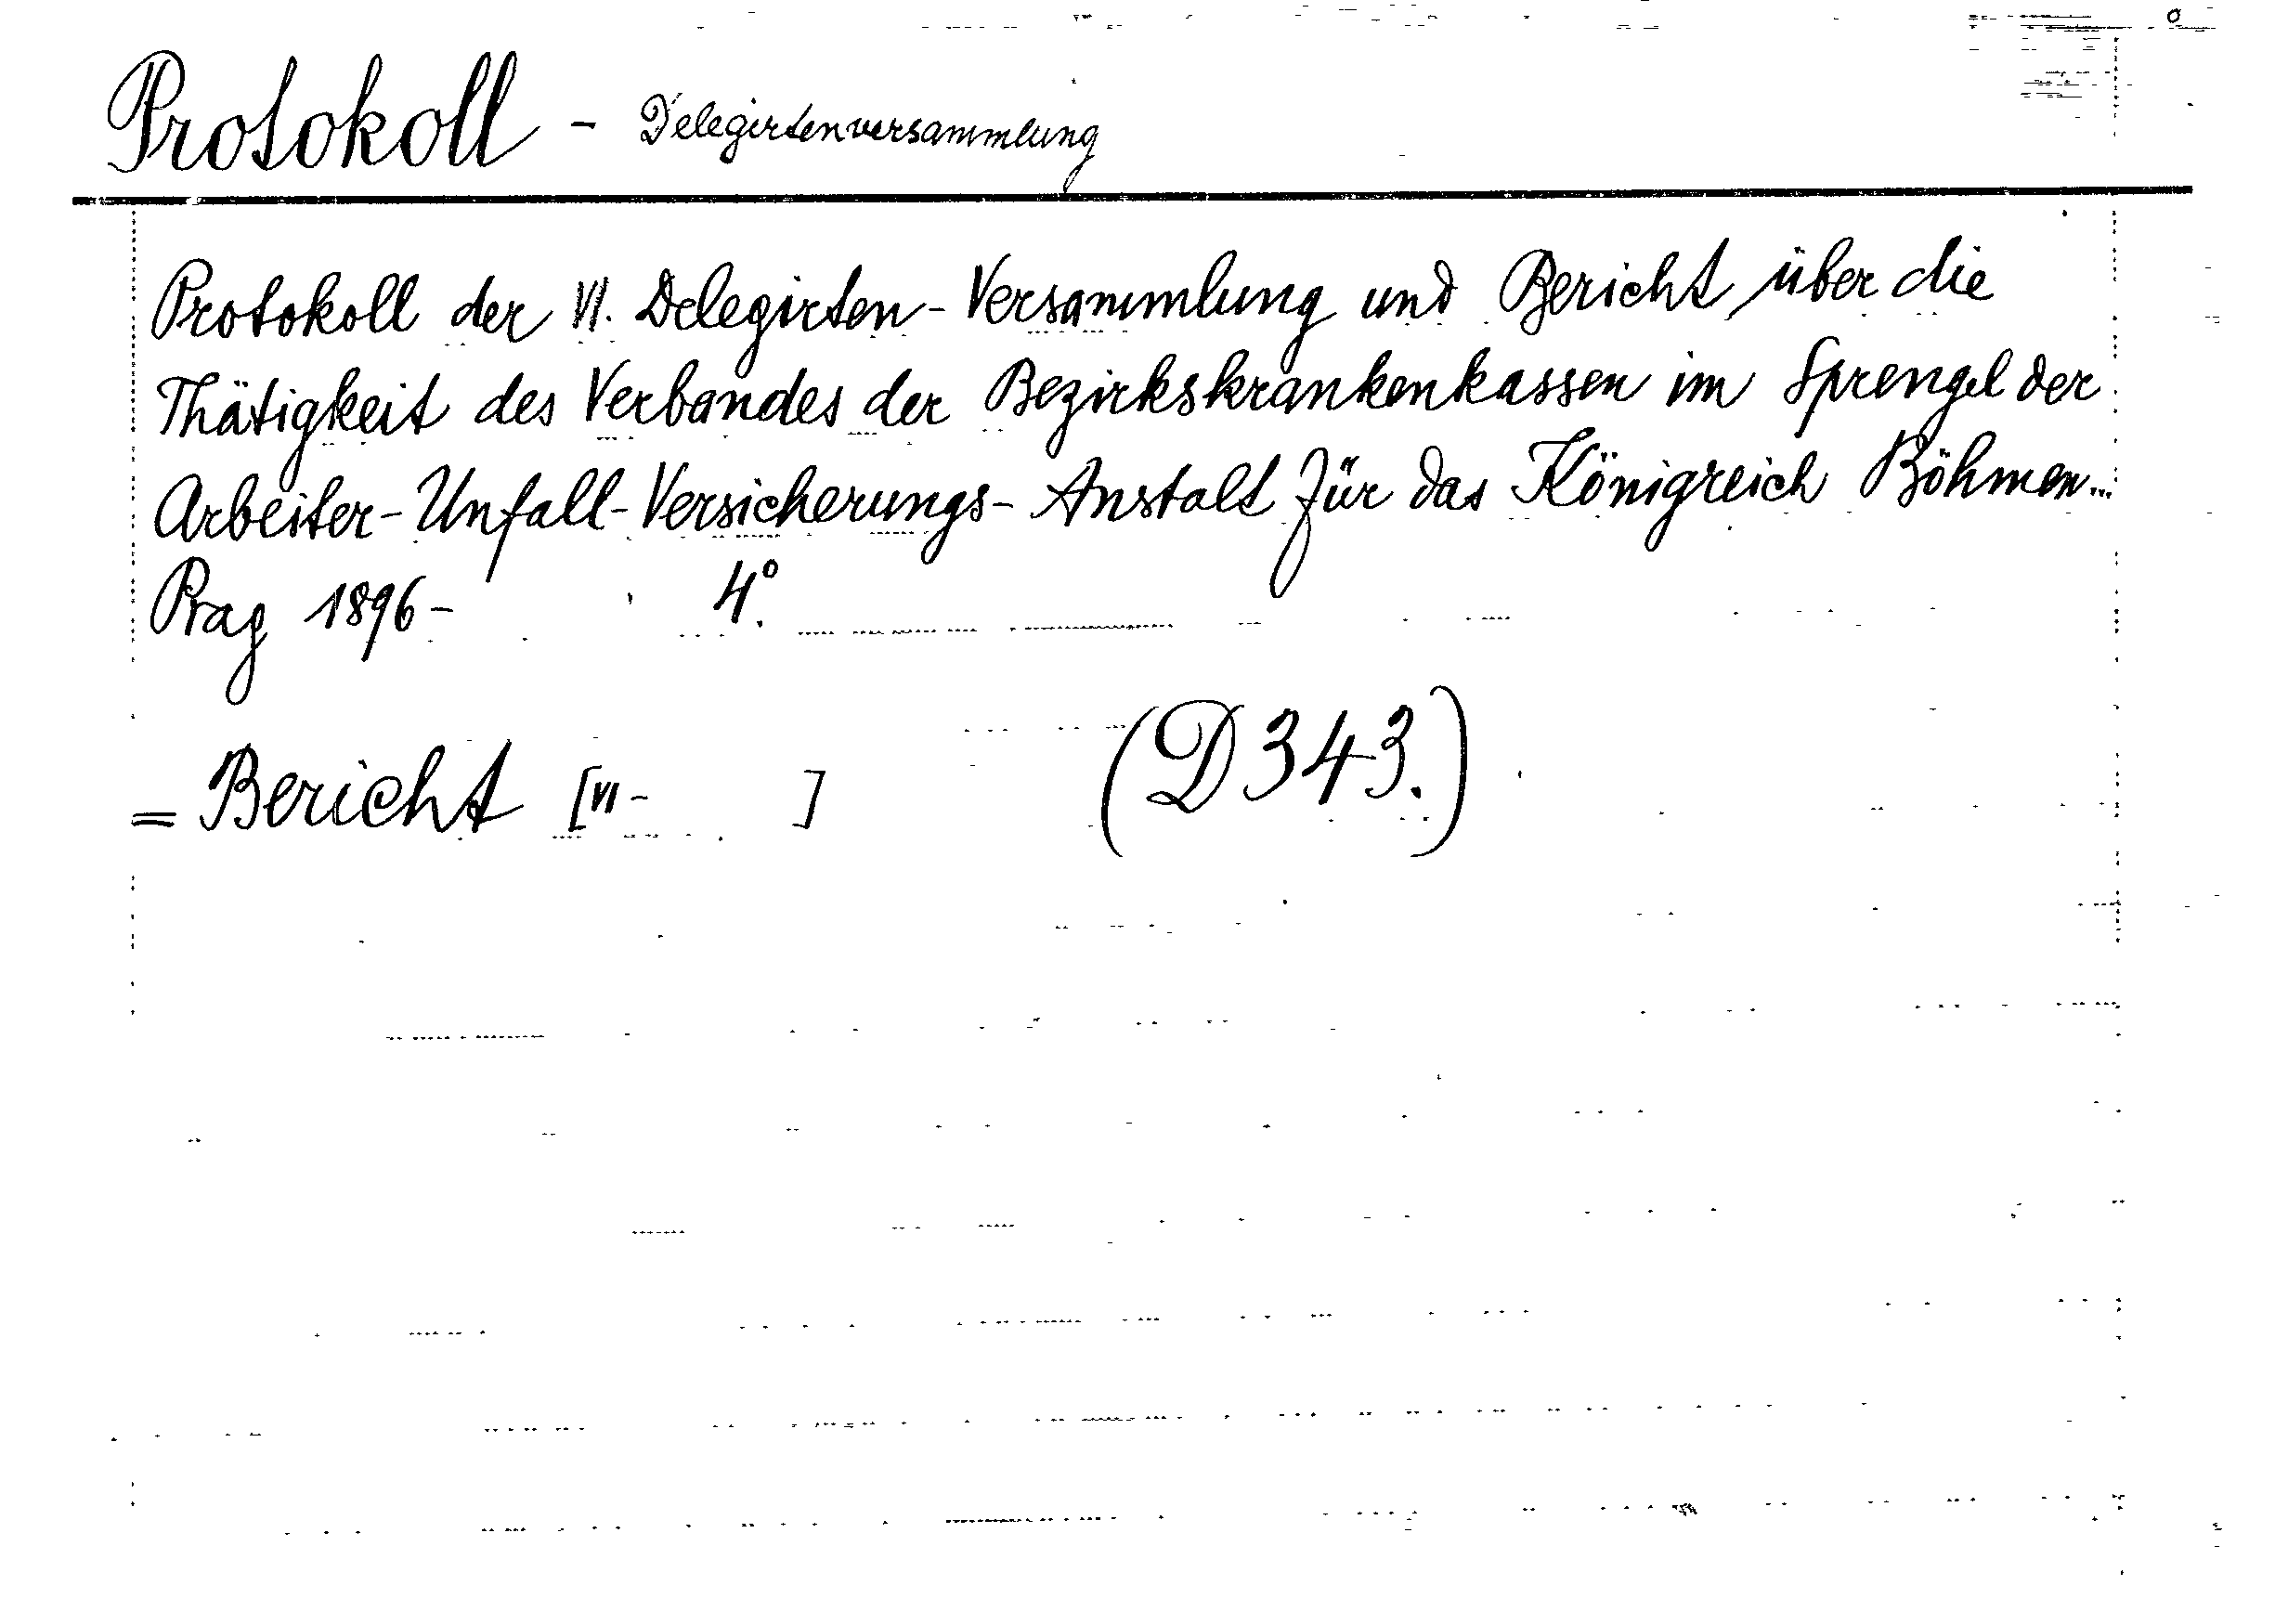 Protokoll - Delegirtenversammlung
Protokoll der VI. Delegirten-Versammlung und Bericht über die
Thätigkeit des Verbandes der Bezirkskrankenkassen im Sprengel der
Arbeiter-Unfall-Versicherungs-Anstalt für das Königreich Böhmen...
Prag 1896- 4°.
= Bericht [VI- ] (D 343.)